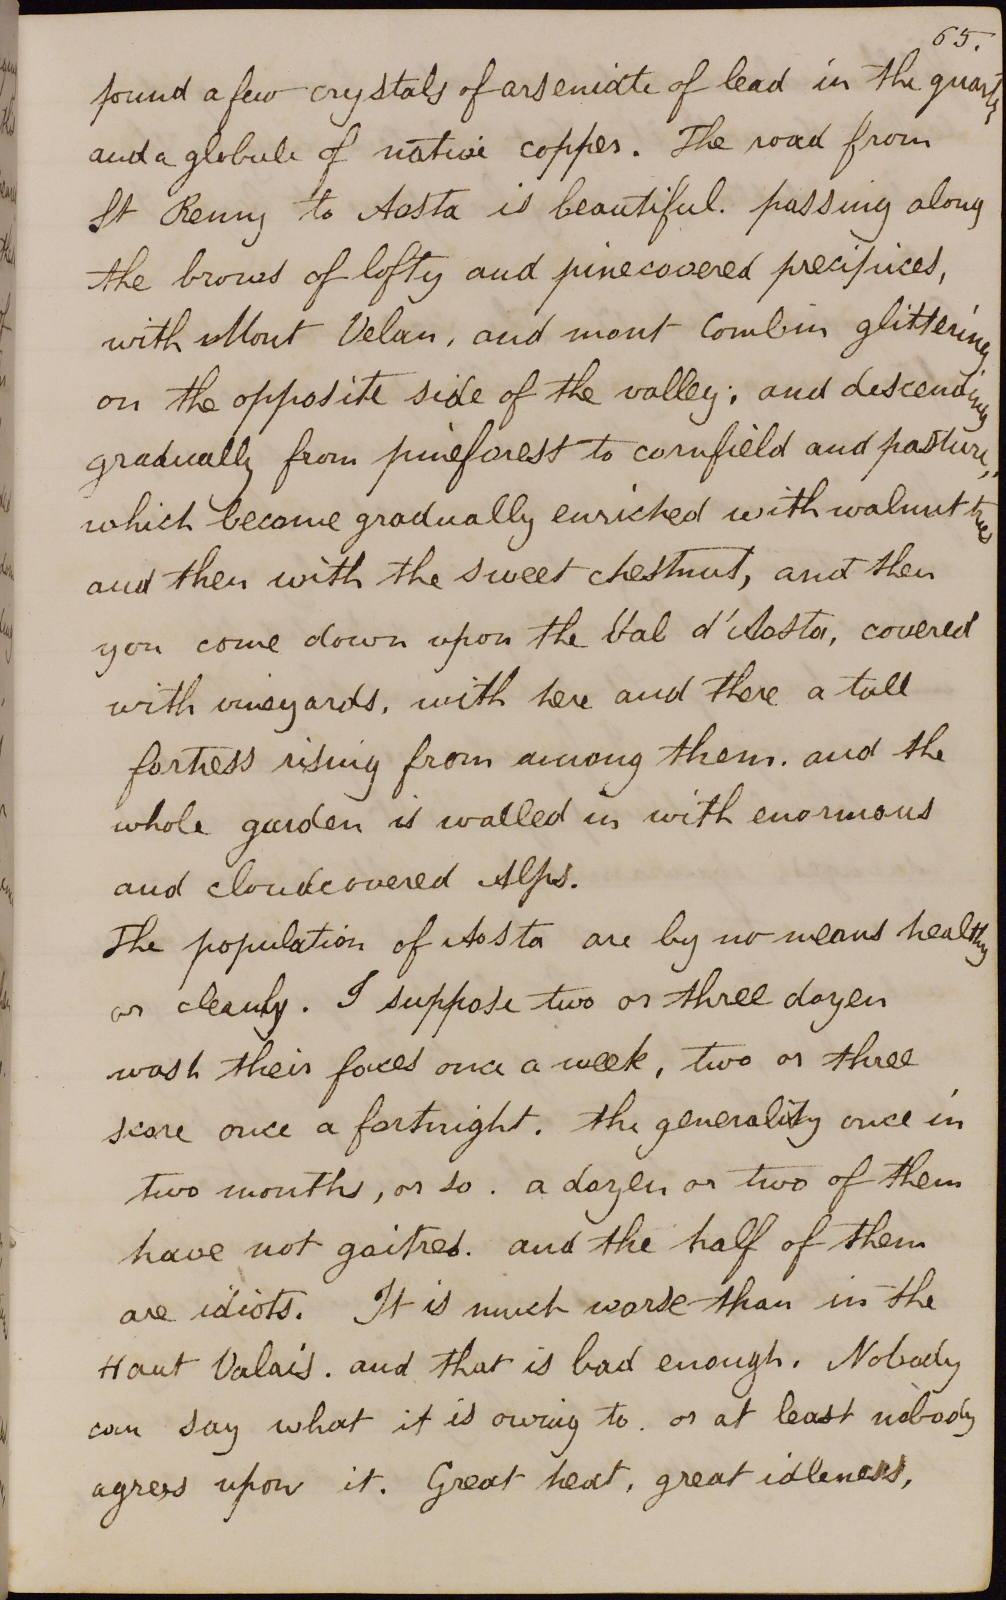 65.
found a few crystals of arseniate of lead in the quartz
and a globule of native copper. The road from
St Remy to Aosta is beautiful. passing along
the brows of lofty and pinecovered precipices,
with Mont Velan, and mont Combin glittering
on the opposite side of the valley; and descending
gradually from pineforest to cornfield and pasture,
which become gradually enriched with walnut tree
and then with the sweet chestnut, and then
you come down upon the Val d'Aosta, covered
with vineyards, with here and there a tall
fortress rising from among them. and the
whole garden is walled in with enormous
and cloudcovered Alps.
The population of Aosta are by no means healthy
or cleanly. I suppose two or three dozen
wash their faces once a week, two or three
score once a fortnight. the generality once in
two months, or so. a dozen or two of them
have not goitres. and the half of them
are idiots. It is much worse than in the
Haut Valais. and that is bad enough. Nobody
can say what it is owing to. or at least nobody
agrees upon it. Great heat, great idleness,